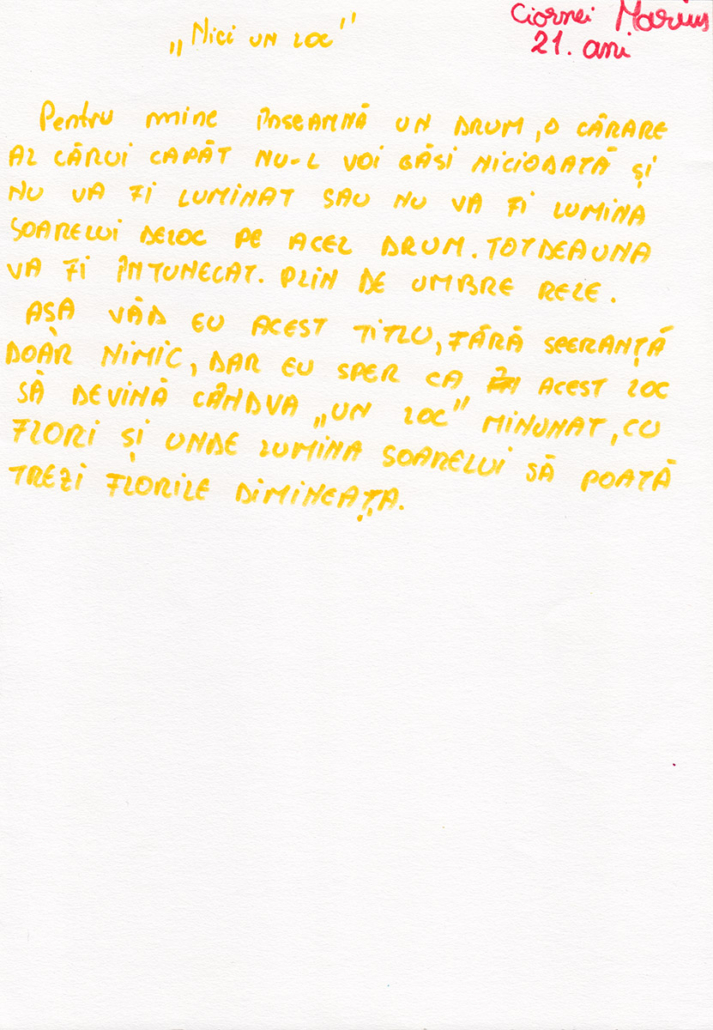 Ciornei Marius
21. ani
„Nici un loc"
Pentru mine ÎNSEAMNĂ UN DRUM, O CĂRARE
AL CĂRUI CAPĂT NU-L VOI GĂSI NICIODATĂ ȘI
NU VA FI LUMINAT SAU NU VA FI LUMINA
SOARELUI DELOC PE ACEL DRUM. TOTDEAUNA
VA FI ÎNTUNECAT. PLIN DE UMBRE RELE.
AȘA VĂD EU ACEST TITLU, FĂRĂ SPERANȚĂ
DOAR NIMIC, DAR EU SPER CA ACEST LOC
SĂ DEVINĂ CÂNDVA „UN LOC" MINUNAT, CU
FLORI ȘI UNDE LUMINA SOARELUI SĂ POATĂ
TREZI FLORILE DIMINEAȚA.